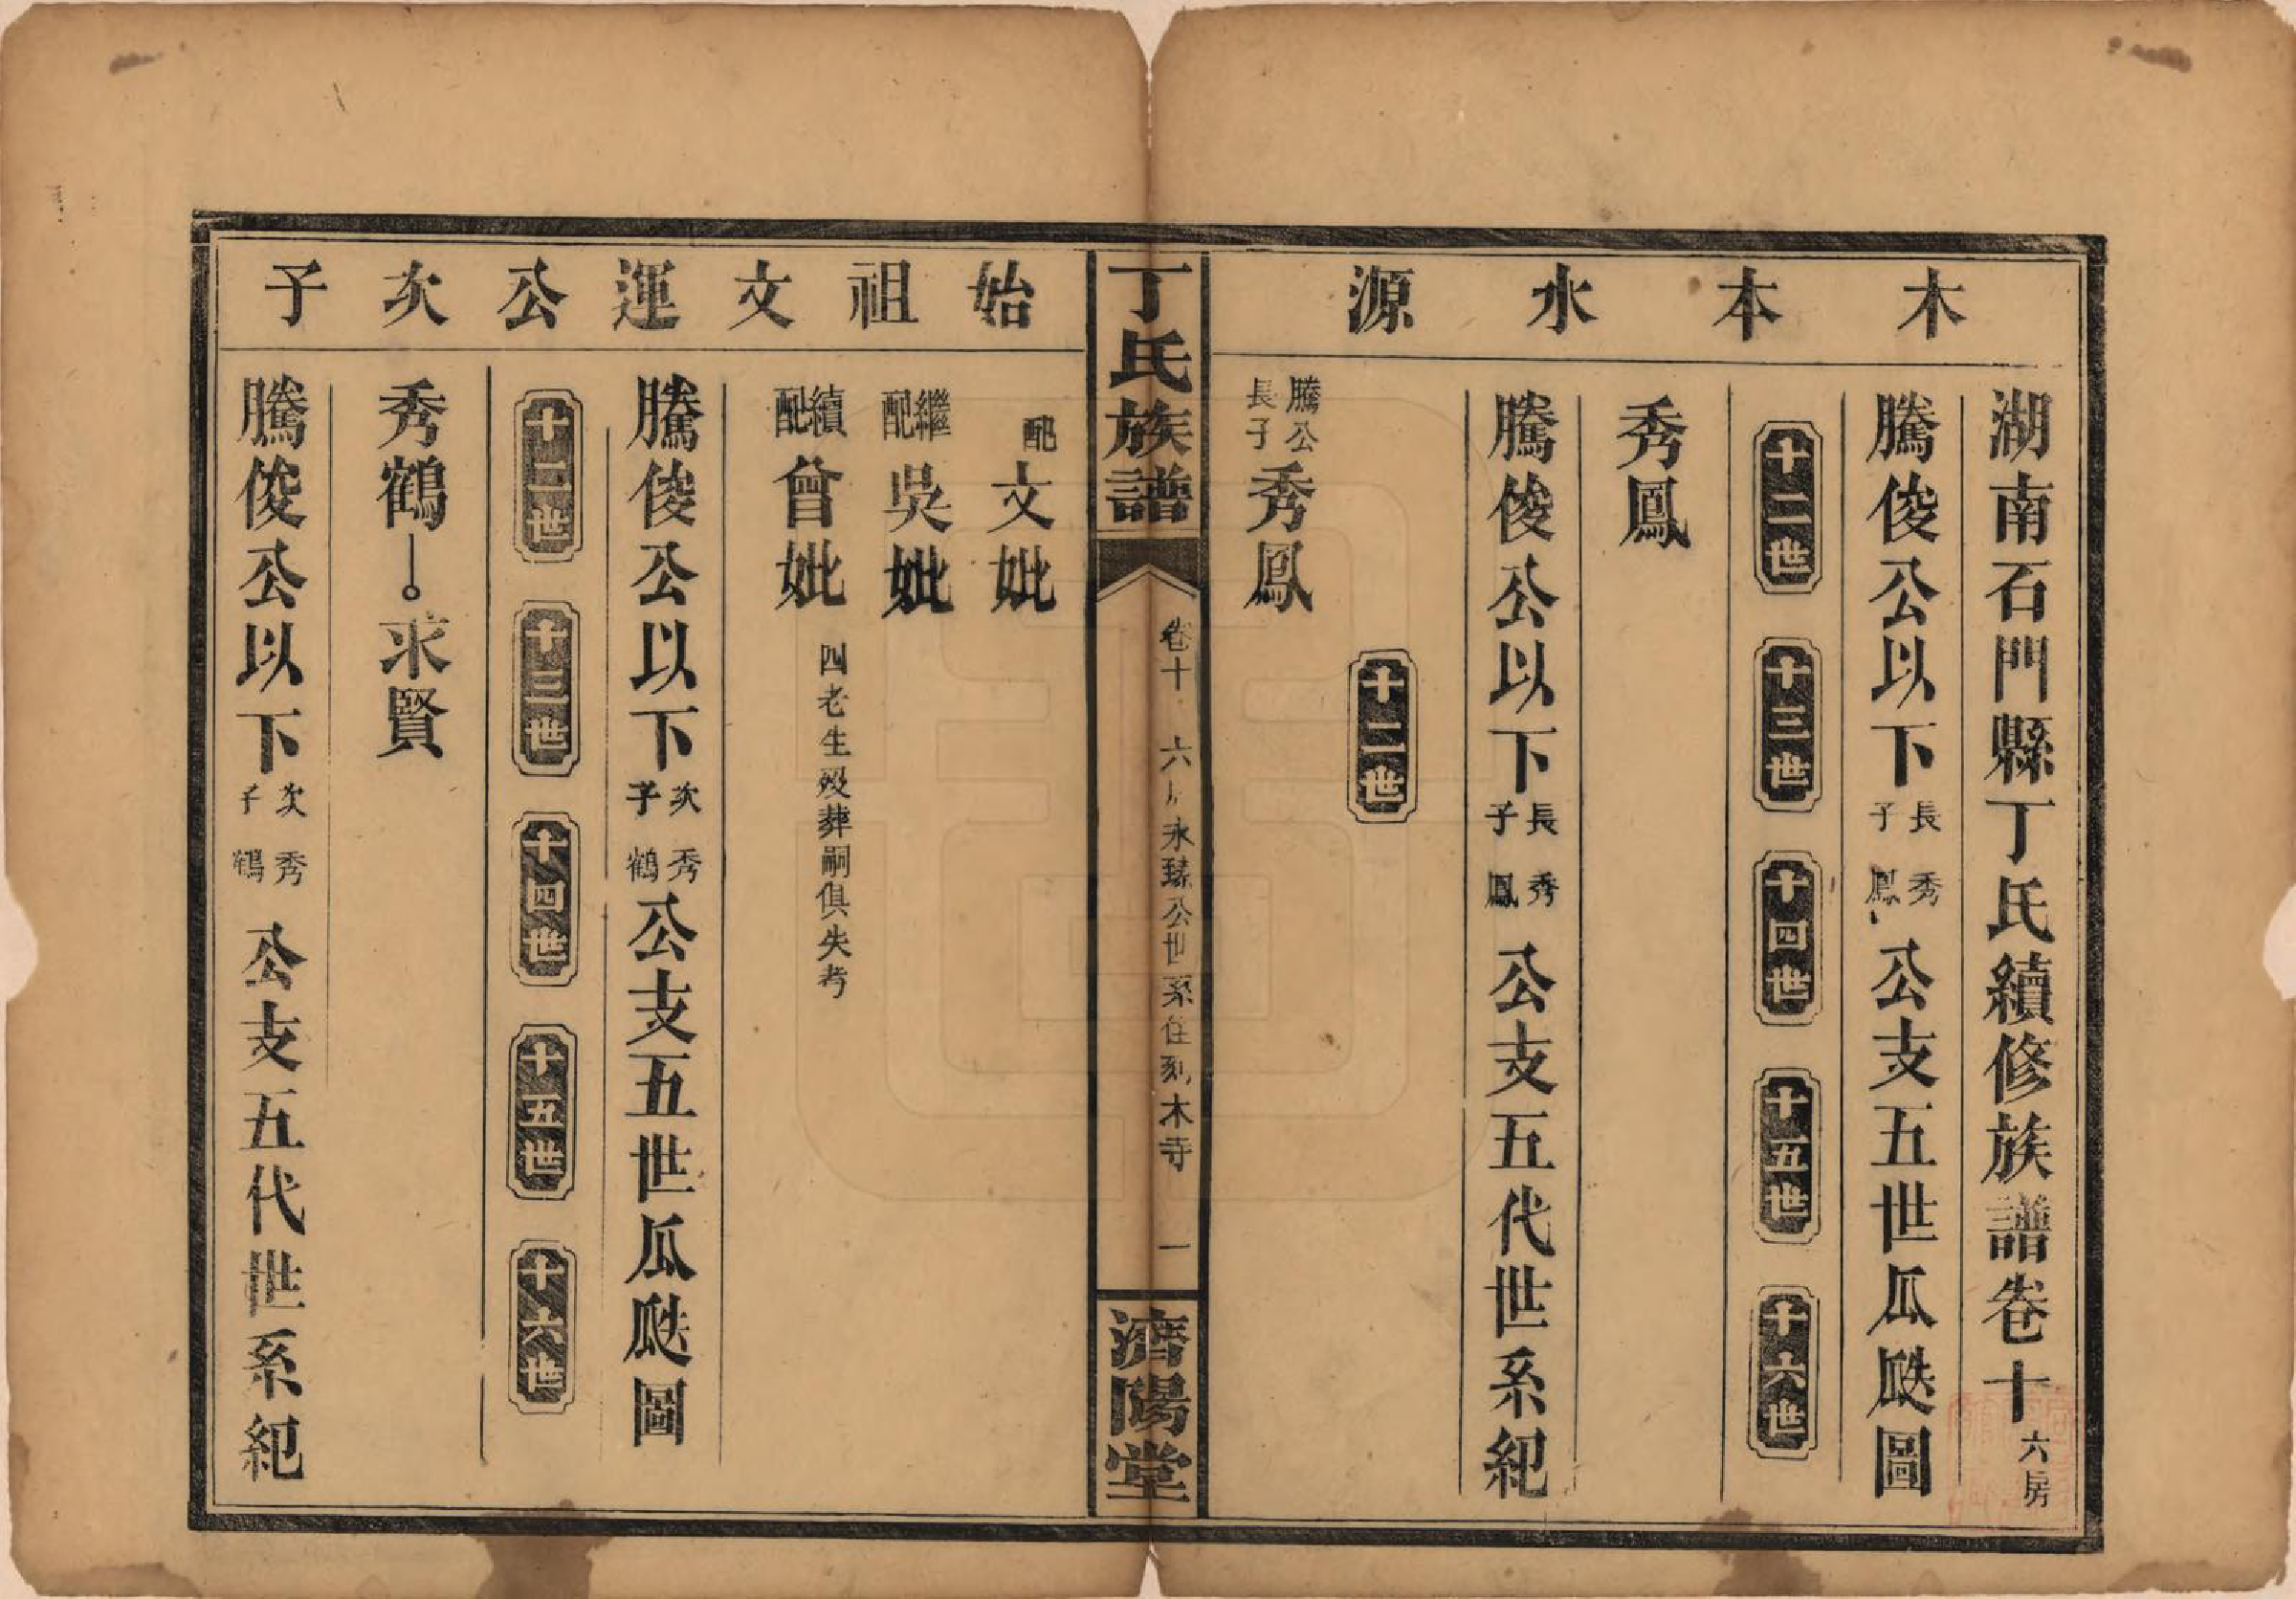 木本水源
湖南石門縣丁氏續修族譜卷十 六房
騰俊公以下長子秀鳳公支五世瓜瓞圖
十二世 十三世 十四世 十五世 十六世
秀鳳
騰俊公以下長子秀鳳公支五代世系紀
十二世
騰公長子秀鳳
丁氏族譜
卷十 六房永琺公世系住刻木寺 一
濟陽堂
始祖文運公次子
配文妣
繼配吳妣
續配曾妣 四老生歿葬嗣俱失考
騰俊公以下次子秀鶴公支五世瓜瓞圖
十二世 十三世 十四世 十五世 十六世
秀鶴 求賢
騰俊公以下次子秀鶴公支五代世系紀